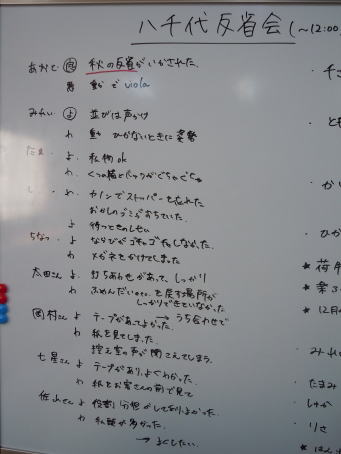 八千代反省会 (~12:00
あかで 良 秋の反省がいかされた。
動 で viola
みれい よ 並びは声かけ
わ 動 ひかないときに姿勢
よ. 私物 ok
わ. くつの箱とバックがぐちゃぐちゃ
わ. カノンでストッパーを忘れた
おかしのゴミがおちていた.
よ 待つとき
ちなつ. よ ならびがゴチャゴチャしなかった.
わ メガネをかけてしまった
太田さん よ 打ちあわせがあって、しっかり
わ ふめんだい を戻す場所が
しっかりできていなかった
岡村さん よ テープがあってよかった. → うち合わせで
わ 紙を見てしまった.
控え室の声が聞こえてしまう.
七星さん よ テープがあり、よくわかった.
わ 紙をお客さんの前で見て
よ 役割分担がしてありよかった
わ 私語が多かった.
→ よくしたい.
・ と
・ か
・ ひか
★ 荷
★
★ 12月
・ みれ
・ たまみ
・ しゅか
・ りさ